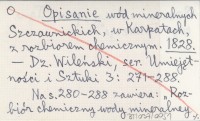 O Opisanie wód mineralnych
Szczawnickich, w Karpatach,
z rozbiorem chemicznym. 1828.
— Dz. Wileński, ser. Umiejęt-
ności i Sztuki 3: 271-288.
Na s. 280-288 zawiera: „Roz-
biór chemiczny wody mineralney